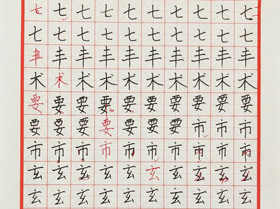 七七七七七七七七七
七七七七七七七七七
丰丰丰丰丰丰丰丰丰
术术术术术术术术术
要要要要要要要要要
要要要要要要要市市
市市市市市市市市市
玄玄玄玄玄玄玄玄玄
玄玄玄玄玄玄玄玄玄